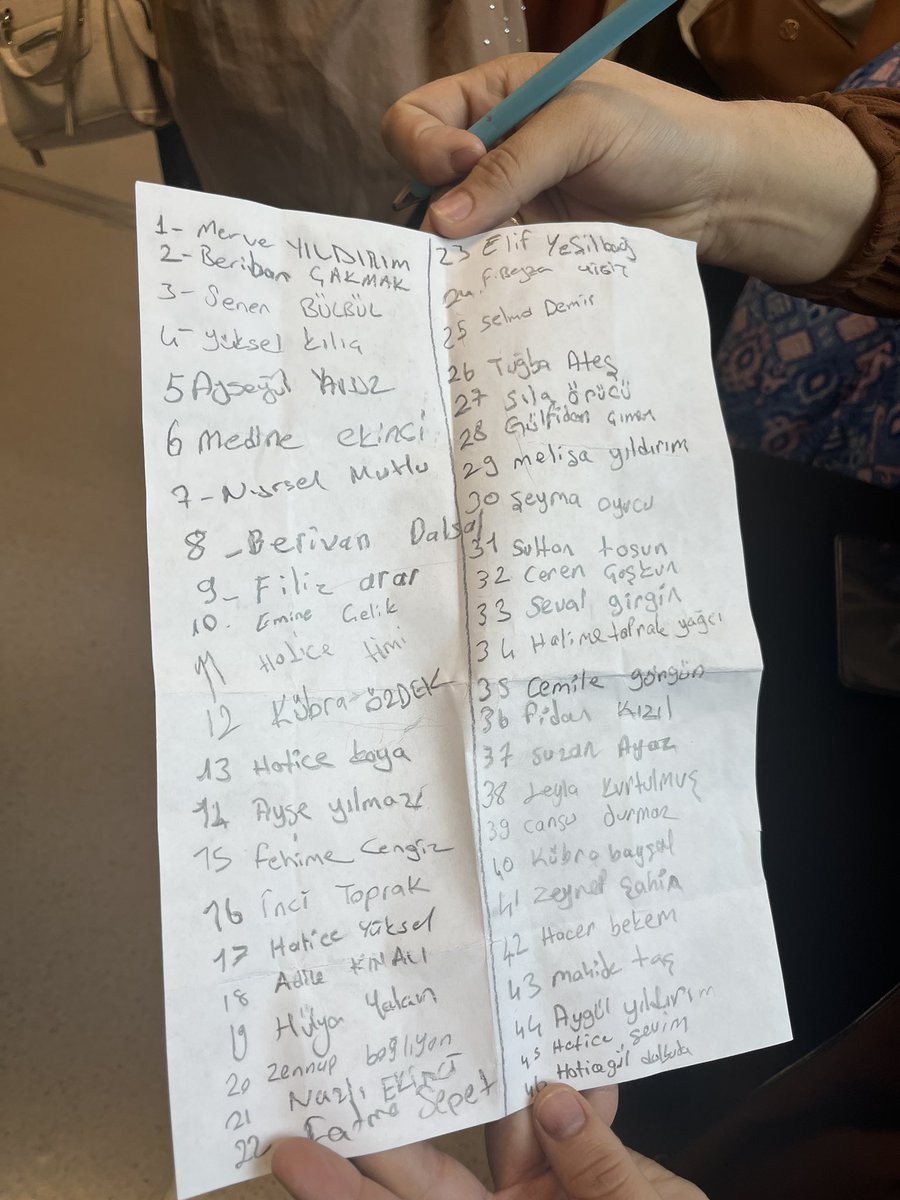 1- Merve YILDIRIM
2- Beriban ÇAKMAK
3- Senen BÜLBÜL
4- Yüksel kılıç
5 Ayşegül YAVUZ
6 Medine ekinci
7- Nursel Mutlu
8 - Berivan Dalsal
9- Filiz arar
10. Emine Çelik
11 Hatice timi
12 Kübra ÖZDEK
13 Hatice kaya
14 Ayşe yılmaz
15 fehime Cengiz
16 İnci Toprak
17 Hatice Yüksel
18 Adile KINALI
19 Hülya Yalçın
20 Zennup bağlıyan
21 Nazlı EKİNCİ
22 Fatma Sepet
23 Elif Yeşilbağ
24. F.Beyza YİĞİT
25 Selma Demir
26 Tuğba Ateş
27 Sıla örücü
28 Gülfidan çimen
29 melisa yıldırım
30 Şeyma oyucu
31 Sultan tosun
32 Ceren Coşkun
33 Seval girgin
34 Halime toprak yağcı
35 Cemile görgün
36 fidan KIZIL
37 Suzan Ayaz
38 Leyla Kurtulmuş
39 cansu durmaz
40 Kübra baysal
41 Zeynep Şahin
42 Hacer bekem
43 mahide taş
44 Aygül yıldırım
45 Hatice sevim
46 Haticegül